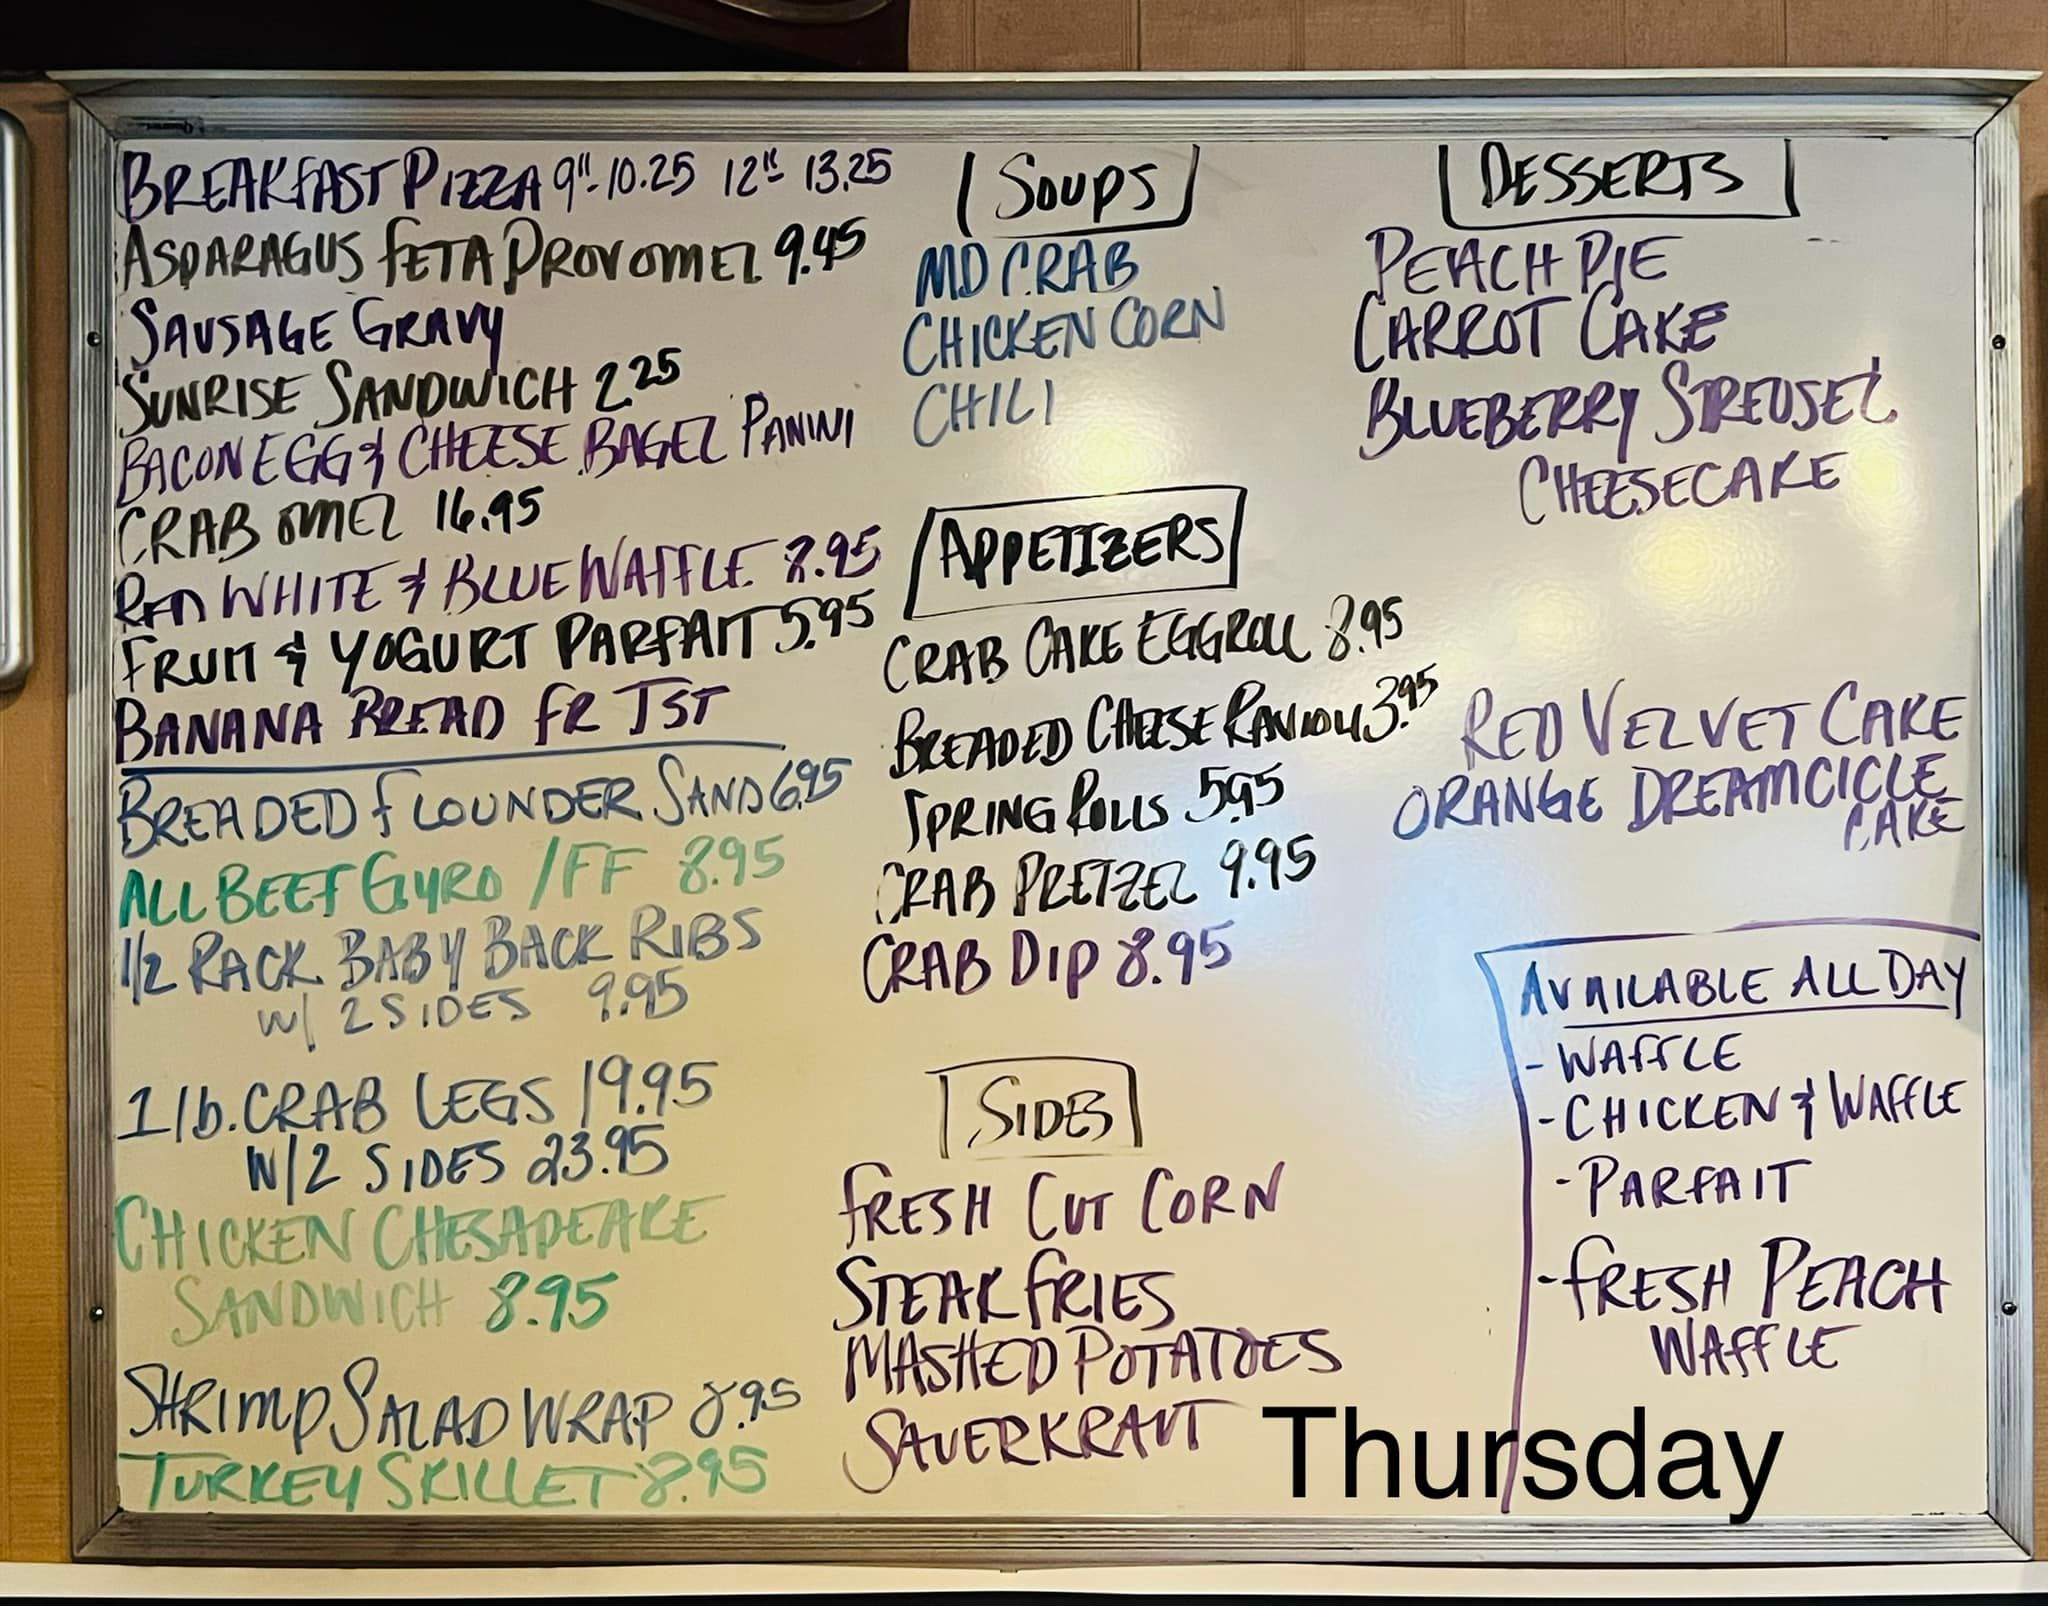 BREAKFAST PIZZA 9"- 10.25 12" 13.25
ASPARAGUS FETA PROV OMEL 9.45
SAUSAGE GRAVY
SUNRISE SANDWICH 2.25
BACON EGG & CHEESE BAGEL PANINI
CRAB OMEL 16.95
RED WHITE & BLUE WAFFLE 8.95
FRUIT & YOGURT PARFAIT 5.95
BANANA BREAD FR TST
BREADED FLOUNDER SAND 6.95
ALL BEEF GYRO /FF 8.95
1/2 RACK BABY BACK RIBS
W/ 2 SIDES 9.95
1 lb. CRAB LEGS 19.95
W/2 SIDES 23.95
CHICKEN CHESAPEAKE
SANDWICH 8.95
SHRIMP SALAD WRAP 8.95
TURKEY SKILLET 8.95
SOUPS
MD CRAB
CHICKEN CORN
CHILI
APPETIZERS
CRAB CAKE EGGROLL 8.95
BREADED CHEESE RAVIOLI 3.95
SPRING ROLLS 5.95
CRAB PRETZEL 9.95
CRAB DIP 8.95
SIDES
FRESH CUT CORN
STEAK FRIES
MASHED POTATOES
SAUERKRAUT
DESSERTS
PEACH PIE
CARROT CAKE
BLUEBERRY STREUSEL
CHEESECAKE
RED VELVET CAKE
ORANGE DREAMCICLE
CAKE
AVAILABLE ALL DAY
- WAFFLE
- CHICKEN & WAFFLE
- PARFAIT
- FRESH PEACH
WAFFLE
Thursday